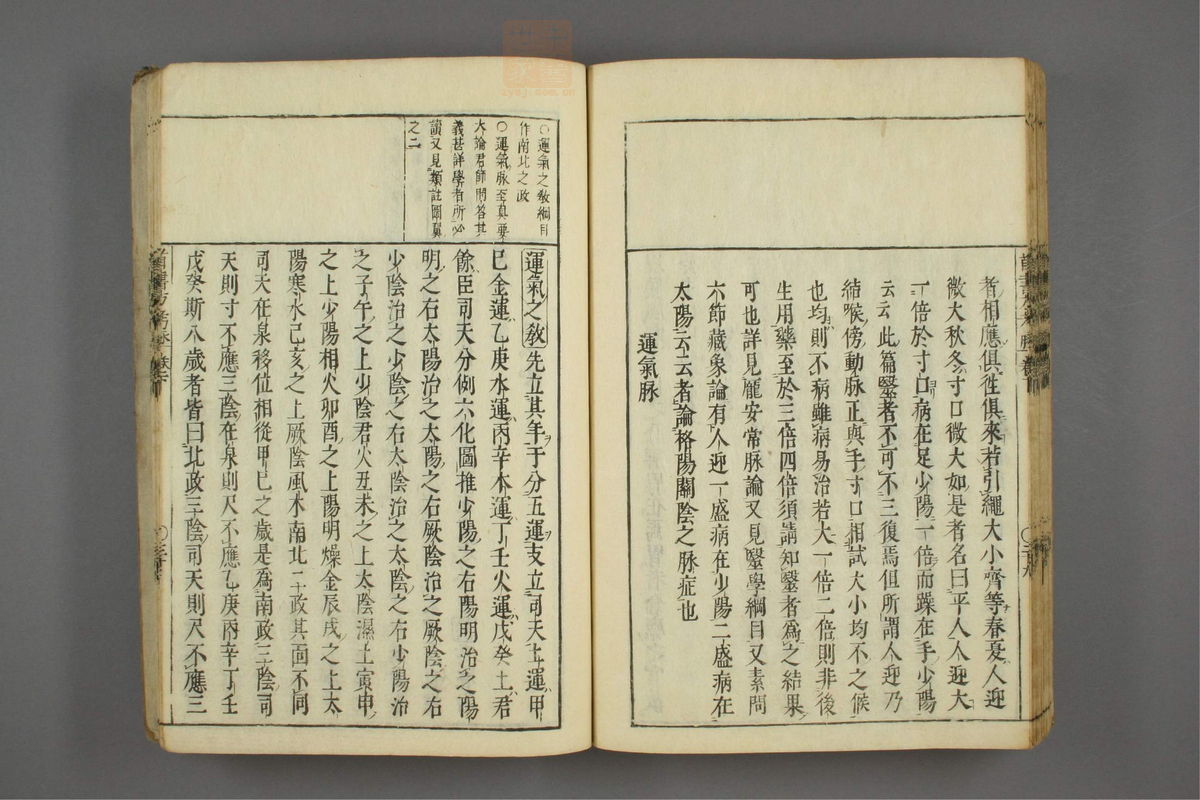 者相應俱徃俱來若引繩大小齊等春夏人迎
微大秋冬寸口微大如是者名曰平人人迎大
一倍於寸口病在足少陽一倍而躁在手少陽
云云此篇毉者不可不三復焉但所謂人迎乃
結喉傍動脉正與手寸口相試大小均不之候
也均則不病雖病易治若大一倍二倍則非後
生用藥至於三倍四倍須請知毉者爲之結果
可也詳見龐安常脉論又見毉學綱目又素問
六節藏象論有人迎一盛病在少陽二盛病在
太陽云云者論格陽關陰之脉症也
運氣脉
〇運氣之敎綱目
作南北之政
〇運氣脉至眞要
大論君師問答其
義甚詳學者所必
讀又見類註圖翼
之二
運氣之敎先立其年干分五運支立司天土運甲
巳金運乙庚水運丙辛木運丁壬火運戊癸土君
餘臣司天分例六化圖推少陽之右陽明治之陽
明之右太陽治之太陽之右厥陰治之厥陰之右
少陰治之少陰之右太陰治之太陰之右少陽治
之子午之上少陰君火丑未之上太陰濕土寅申
之上少陽相火卯酉之上陽明燥金辰戌之上太
陽寒水己亥之上厥陰風木南北二政其面不同
司天在泉移位相從甲巳之歲是爲南政三陰司
天則寸不應三陰在泉則尺不應乙庚丙辛丁壬
戊癸斯八歲者皆曰北政三陰司天則尺不應三